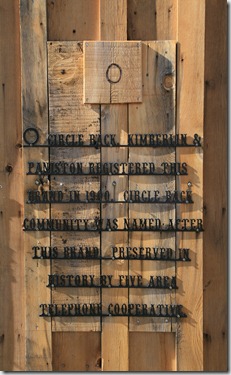 CIRCLE BACK, KIMBERLIN &
PANISTON REGISTERED THIS
BRAND IN 1909. CIRCLE BACK
COMMUNITY WAS NAMED AFTER
THIS BRAND. PRESERVED IN
HISTORY BY FIVE AREA
TELEPHONE COOPERATIVE